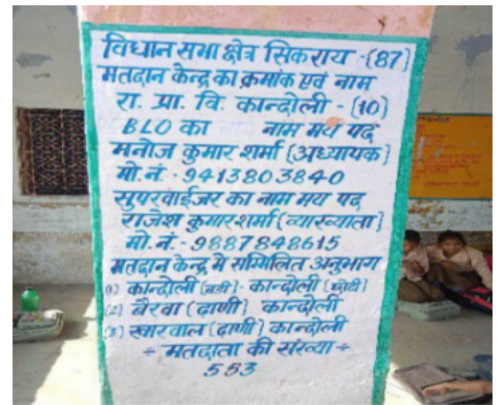 विधान सभा क्षेत्र सिकराय -{87}
मतदान केन्द्र का क्रमांक एवं नाम
रा. प्रा. वि. कान्दोली - {10}
BLO का नाम मय पद
मनोज कुमार शर्मा {अध्यापक}
मो.नं - 9413803840
सुपरवाईजर का नाम मय पद
राजेश कुमार शर्मा {व्याख्याता}
मो. नं. - 9887848615
मतदान केन्द्र मे सम्मिलित अनुभाग
(1) कान्दोली (बडी)- कान्दोली (छोटी)
(2) बैरवा (ढाणी) कान्दोली
(3) खारवाल (ढाणी) कान्दोली
÷ मतदाता की संख्या ÷
553